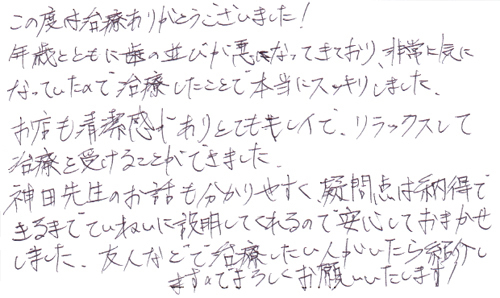 この度は治療ありがとうございました!
年歳とともに歯の並びが悪くなってきており、非常に気に
なっていたので治療したことで本当にスッキリしました。
お店も清潔感がありとてもキレイで、リラックスして
治療を受けることができました。
神田先生のお話も分かりやすく、疑問点は納得で
きるまでていねいに説明してくれるので安心しておまかせ
しました。友人などで治療したい人がいたら紹介し
ますのでよろしくお願いいたします